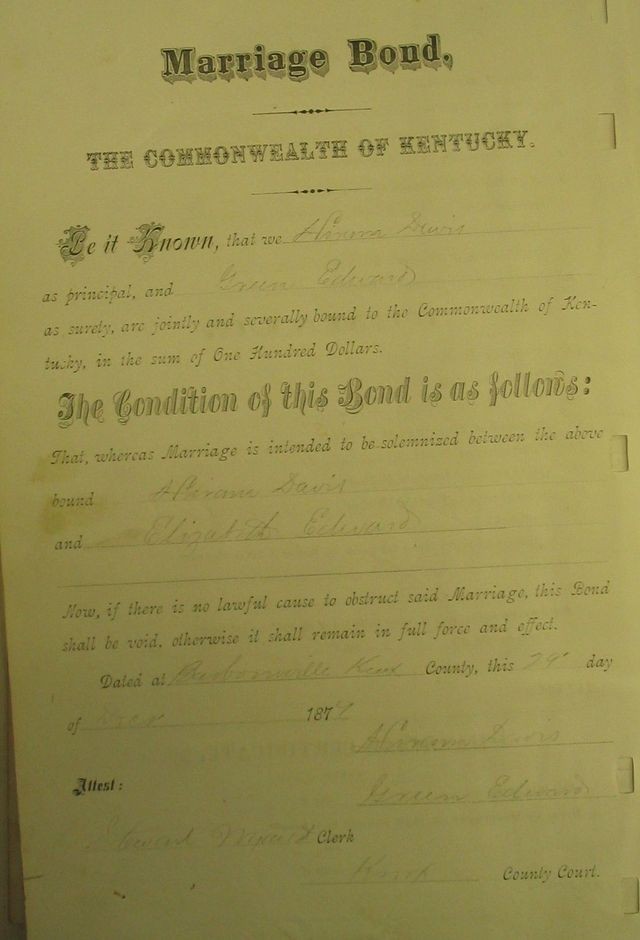 Marriage Bond.
THE COMMONWEALTH OF KENTUCKY.
Be it Known, that we Hiram Davis
as principal, and Green Edward
as surety, are jointly and severally bound to the Commonwealth of Ken-
tucky, in the sum of One Hundred Dollars.
The Condition of this Bond is as follows:
That, whereas Marriage is intended to be solemnized between the above
bound Hiram Davis
and Elizabeth Edward
Now, if there is no lawful cause to obstruct said Marriage, this Bond
shall be void, otherwise it shall remain in full force and effect.
Dated at Barbourville Knox County, this day
of Decr 187
Hiram Davis
Attest:
Green Edward
Clerk
Knox County Court.